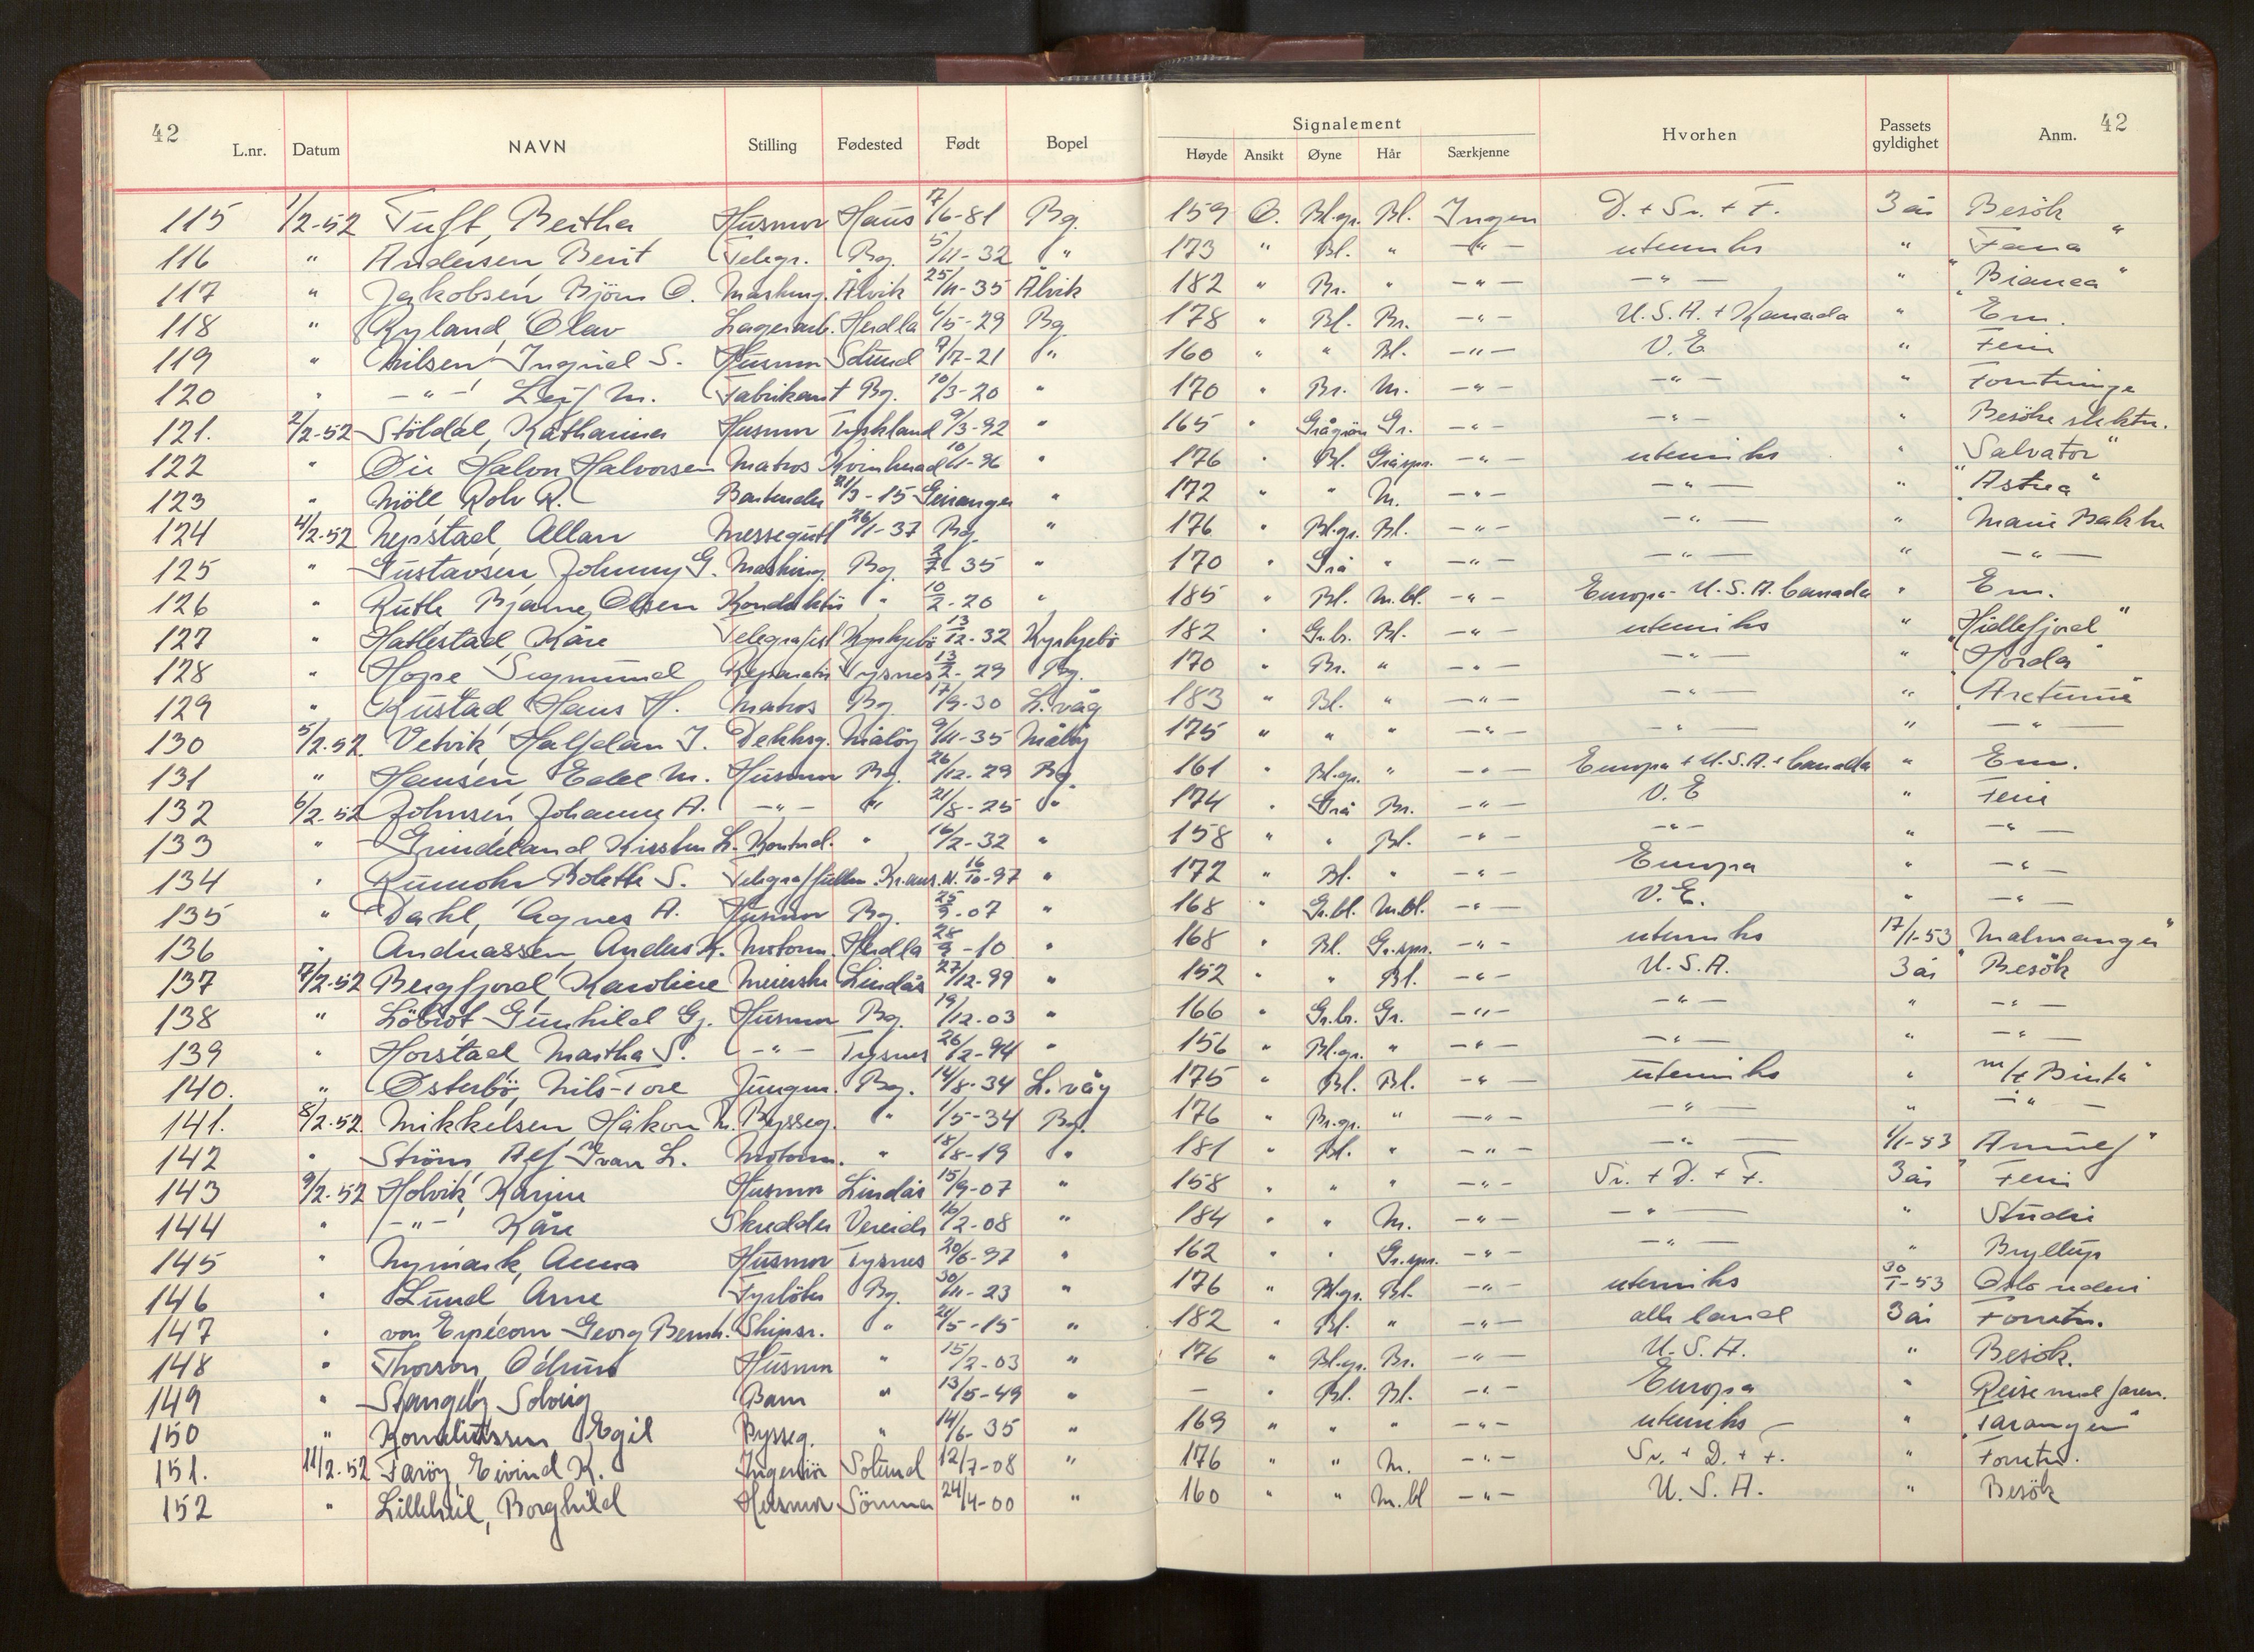 42
L.nr. Datum NAVN Stilling Fødested Født Bopel
Signalement
Høyde Ansikt Øyne Hår Særkjenne Hvorhen Passets gyldighet Anm. 42
115 1/2-52 Tuft, Bertha Husmor Haus 17/6-81 Bg. 159 O. Bl.gr. Bl. Ingen D. + Sv. + F. 3 år Besök
116 " Andersen Berit Telegr. Bg. 5/11-32 " 173 " Bl. " -"- utenriks " "Fana"
117 " Jakobsen Bjørn O. Masking. Ålvik 25/11-35 Ålvik 182 " Br. " -"- -"- " "Bianca"
118 " Ryland, Olav Lagerarb. Herdla 6/5-29 Bg 178 " Bl. Br. -"- U.S.A. + Kanada " Em.
119 " Nilsen Ingrid S. Husmor Solund 9/7-21 " 160 " " Bl. -"- V.E " Ferie
120 " -"- Leif M. Fabrikant Bg. 10/3-20 " 170 " Br. M. -"- -"- "
121. 2/2-52 Stöldal, Katharina Husmor Tyskland 9/3-92 " 165 " Grågrön Gr. -"- -"- " Besöke slektn.
122 " Øie Halvor Halvorsen Matros 10/11-96 " 176 " Bl. Gråspr. -"- utenriks " "Salvator"
123 " Möll Rolv R. Bartender 21/3-15 Geiranger " 172 " " M. -"- -"- " "Astrea"
124 4/2-52 Nepstad, Allan Messegutt 26/1-37 Bg. " 176 " Bl.gr. Bl. -"- -"- " Marie Bakke
125 " Gustavsen, Johnny G. Masking. Bg. 2/7-35 " 170 " Grå " -"- -"- " -"-
126 " Rutle Bjarne Olsen Konduktör " 10/2-20 " 185 " Bl. M.bl. -"- Europa - U.S.A. Canada " Em.
127 " Hatlestad, Kåre Telegrafist Kyrkjebö 13/12-32 Kyrkjebö 182 " Gr.br. Bl. -"- utenriks " "Hidlefjord"
128 " Hope Sigmund Reparatör Tysnes 13/2-29 Bg. 170 " Br. " -"- -"- " "Horda"
129 " Rustad Hans H. Matros Bg 17/9-30 L.våg 183 " Bl. " -"- -"- "
130 5/2-52 Vetvik Halfdan J. Dekksg. Måløy 9/11-35 Måløy 175 " " " -"- -"- " -"-
131 " Hansen, Edel M. Husmor Bg. 26/12-29 Bg. 161 " Bl.gr. " -"- Europa + U.S.A. + Canada " Em.
132 6/2-52 Johnsen Johanne A. -"- " 21/8-25 " 174 " Grå Br. -"- V.E " Ferie
133 " Grindeland Kirsten L. Kontord. " 16/2-32 " 158 " " Bl. -"- -"- " -"-
134 " Rumohr Bolette S. Kr.sus.N. 16/10-97 " 172 " Bl. " -"- Europa " -"-
135 " Dahl, Agnes A. Husmor Bg. 25/9-07 " 168 " Gr.bl. M.bl. -"- V.E. " -"-
136 " Andreassen, Anders K. Motorm. Herdla 28/9-10 " 168 " Bl. Gr.spr. -"- utenriks 17/1-53 "Malmanger"
137 7/2-52 Bergfjord, Karoline Meierske Lindås 27/12-99 " 152 " " Bl. -"- U.S.A. 3 år Besök
138 " Gunhild Gj. Husmor Bg. 19/12-03 " 166 " Gr.br. Gr. -"- -"- " -"-
139 " Horstad, Martha S. -"- Tysnes 26/2-94 " 156 " Bl.gr. " -"- -"- " -"-
140. " Østerbö, Nils-Tore Jungm. Bg. 14/8-34 L.våg 175 " Bl. Bl. -"- utenriks " m/t Binta"
141. 8/2-52 Mikkelsen Håkon N. Bysseg. " 1/5-34 Bg. 176 " Br.gr. " -"- -"- " -"-
142 " Ström, Alf Ivar L. Motorm. " 18/8-19 " 181 " Bl. " -"- -"- 4/1-53
143 9/2-52 Holvik, Karine Husmor Lindås 15/9-07 " 158 " " " -"- Sv. + D. + F. 3 år Ferie
144 " -"- Kåre Skredder 16/2-08 " 184 " " M. -"- -"- " Studie
145 " Nymark, Anna Husmor Tysnes 20/6-97 " 162 " " Gr.spr. -"- -"- " Bryllup
146 " Lund Arne Fyrböter Bg. 30/11-23 " 176 " Bl.gr. Bl. -"- utenriks 30/1-53 Oslo rederi
147 " von Erpecom Georg Bernh. Skipsr. " 21/5-15 " 182 " Bl. " -"- alle land 3 år Forretn.
148 " Thorson, Odrun Husmor " 15/2-03 " 176 " Bl.gr. Br. -"- U.S.A. " Besök.
149 " Stangeby Solveig Barn " 13/5-49 " - " Bl. Bl. -"- Europa " Reise med faren.
150 " Korneliussen Egil Bysseg. " 14/6-35 " 169 " " " -"- utenriks " "Taranger"
151. 11/2-52 Faröy, Eivind K. Ingeniör Solund 12/7-08 " 176 " " M. -"- Sv. + D. + F. " Forretn.
152 " Lilleheil, Borghild Husmor Sömna 24/4-00 " 160 " " M.bl -"- U.S.A. " Besök